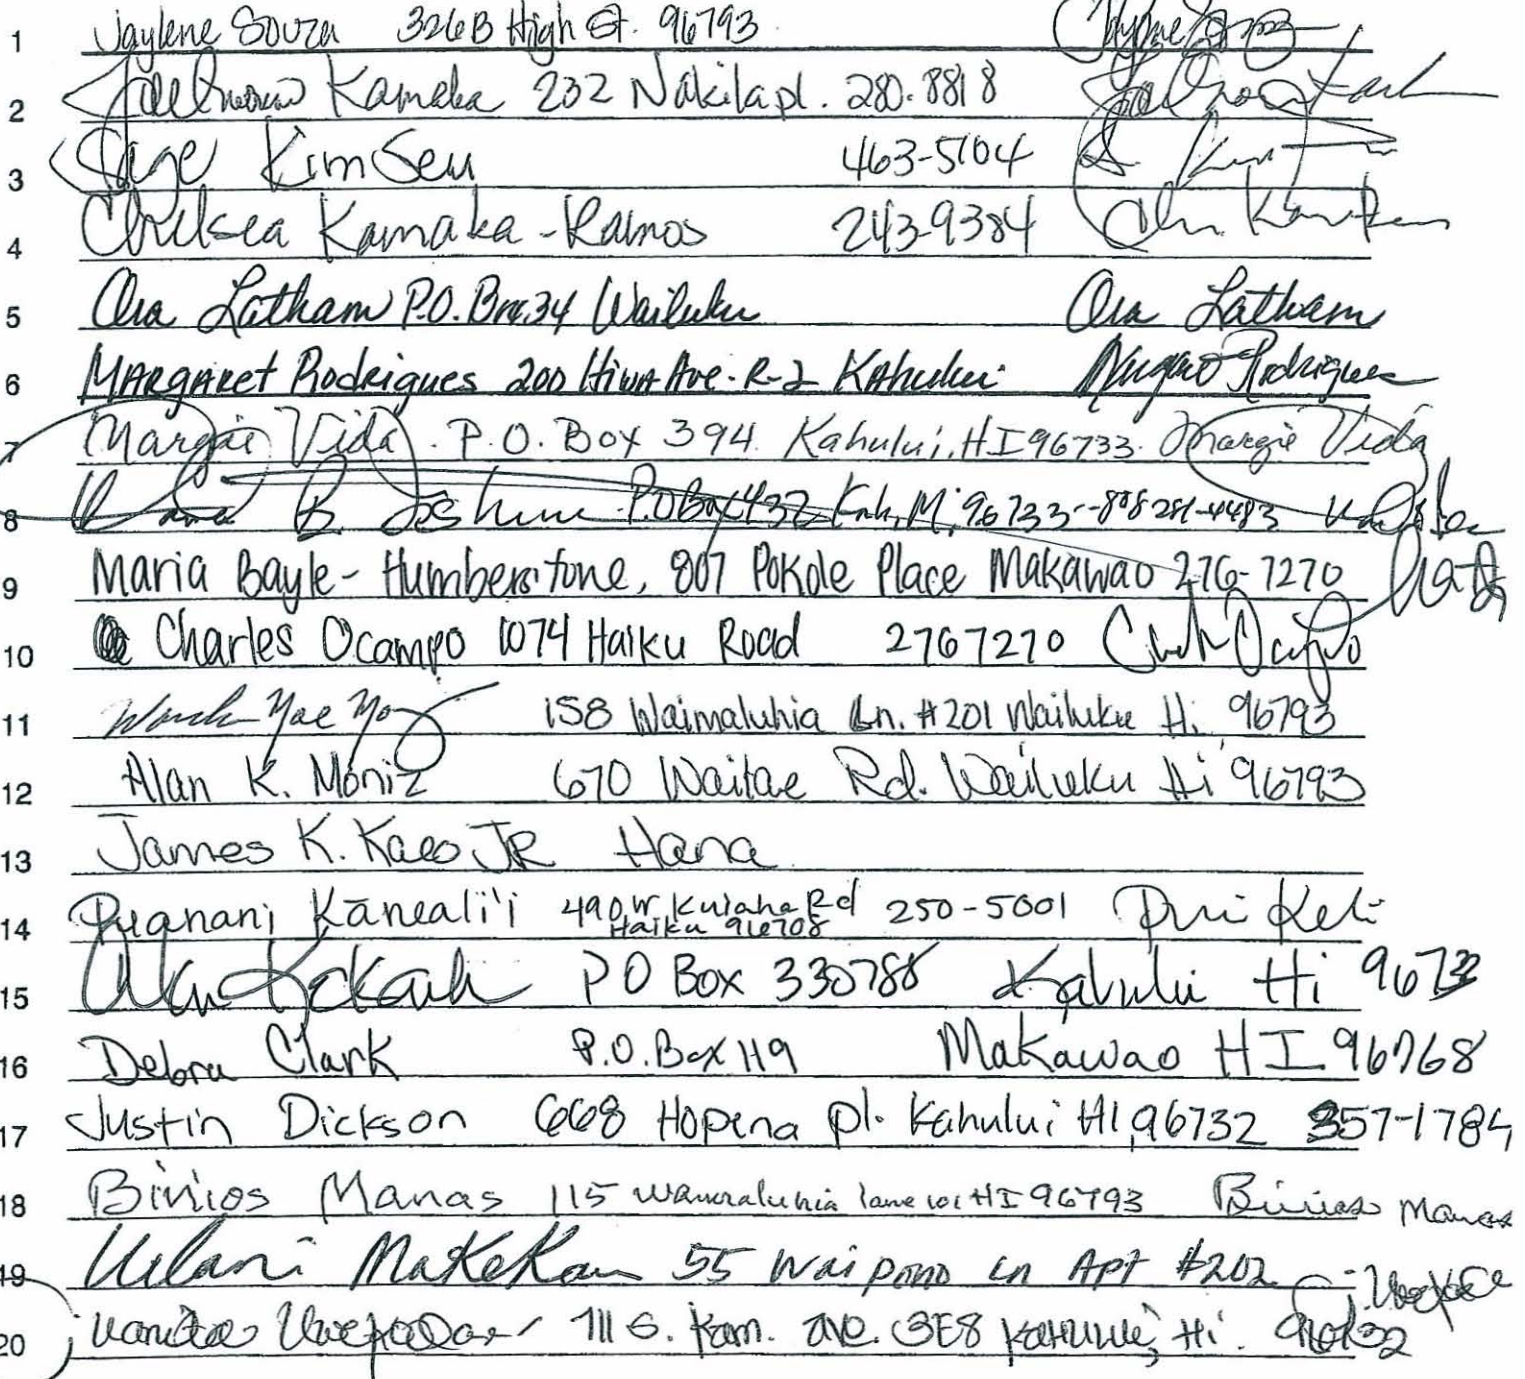 1 Jaylene Souza 326B High St. 96793
2 Kamaka 232 Nakila pl. 280.8818
3 Sage Kim Seu 463-5104
4 Chelsea Kamaka-Ramos 243-9384
5 Ora Latham P.O. Box 34 Wailuku Ora Latham
6 Margaret Rodrigues 200 Hina Ave. R-2 Kahului Rodrigues
7 Margie Vida. P.O. Box 394. Kahului, HI 96733. Margie Vida
8 P.O Box 432 Kah, 96733--808 281-4483
9 Maria Bayle-Humberstone, 807 Pokole Place Makawao 276-7270
10 Charles Ocampo 1074 Haiku Road 2767270
11 158 Waimaluhia Ln. #201 Wailuku Hi 96793
12 Alan K. Moniz 670 Wailuku Hi 96793
13 James K. Kaeo JR Hana
14 Puanani Kānealiʻi 490 W Kuiaha Rd 250-5001
Haiku 96708
15 PO Box 330788 Kahului Hi 96733
16 Debra Clark P.O. Box 119 Makawao HI 96768
17 Justin Dickson 668 Hopena pl. Kahului HI, 96732 357-1784
18 Manas 115 lane HI 96793 Manas
19 Makekau 55 Waipono Ln Apt #202
20 111 S. Kam. ave. 3E8 Kahului, Hi. 96732